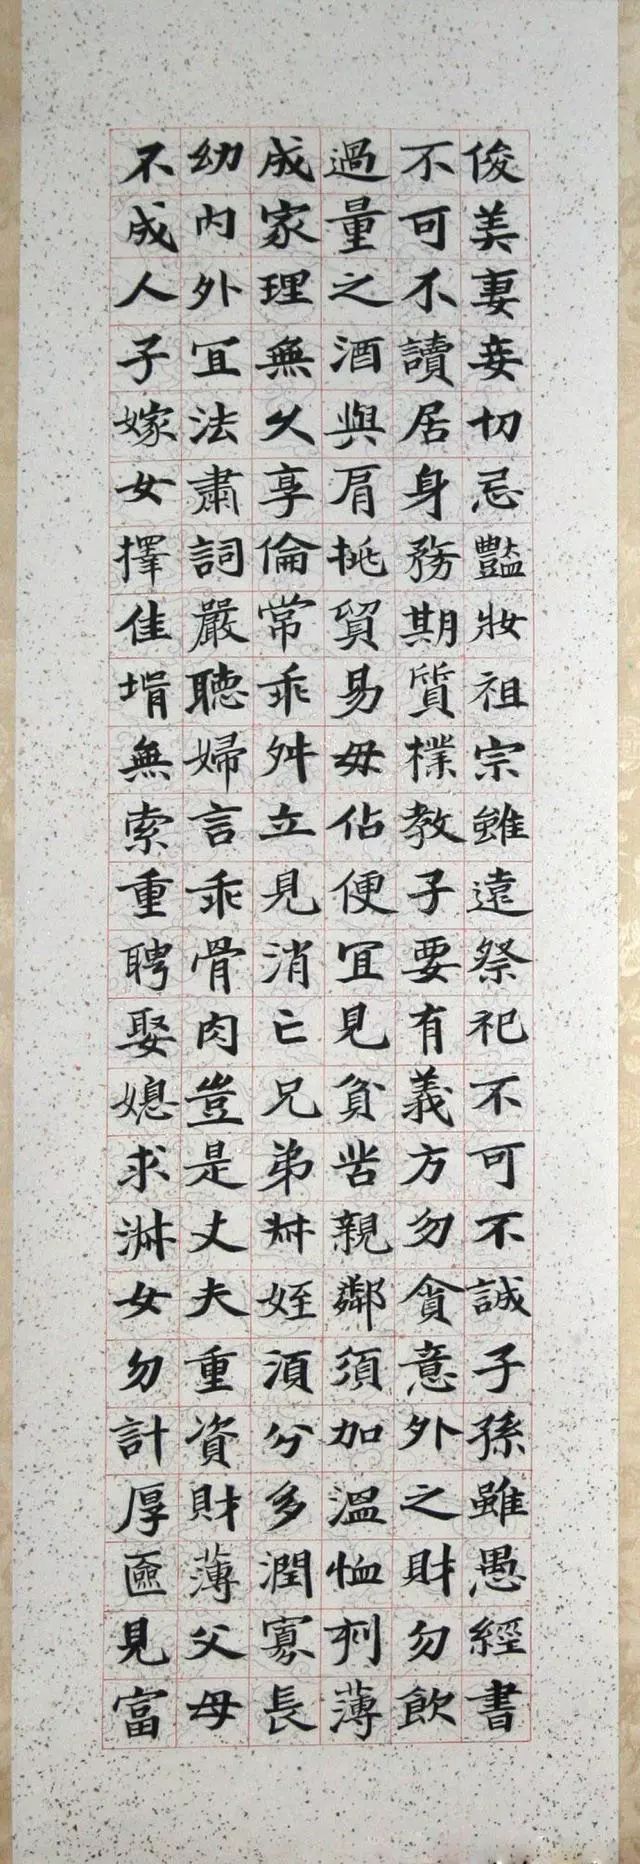 俊美妻妾切忌豔妝祖宗雖遠祭祀不可不誠子孫雖愚經書
不可不讀居身務期質樸教子要有義方勿貪意外之財勿飲
過量之酒與肩挑貿易毋佔便冝見貧苦親鄰須加溫恤刻薄
成家理無久享倫常乖舛立見消亡兄弟叔姪須分多潤寡長
幼內外冝法肅詞嚴聽婦言乖骨肉豈是丈夫重資財薄父母
不成人子嫁女擇佳壻無索重聘娶媳求淑女勿計厚匳見富